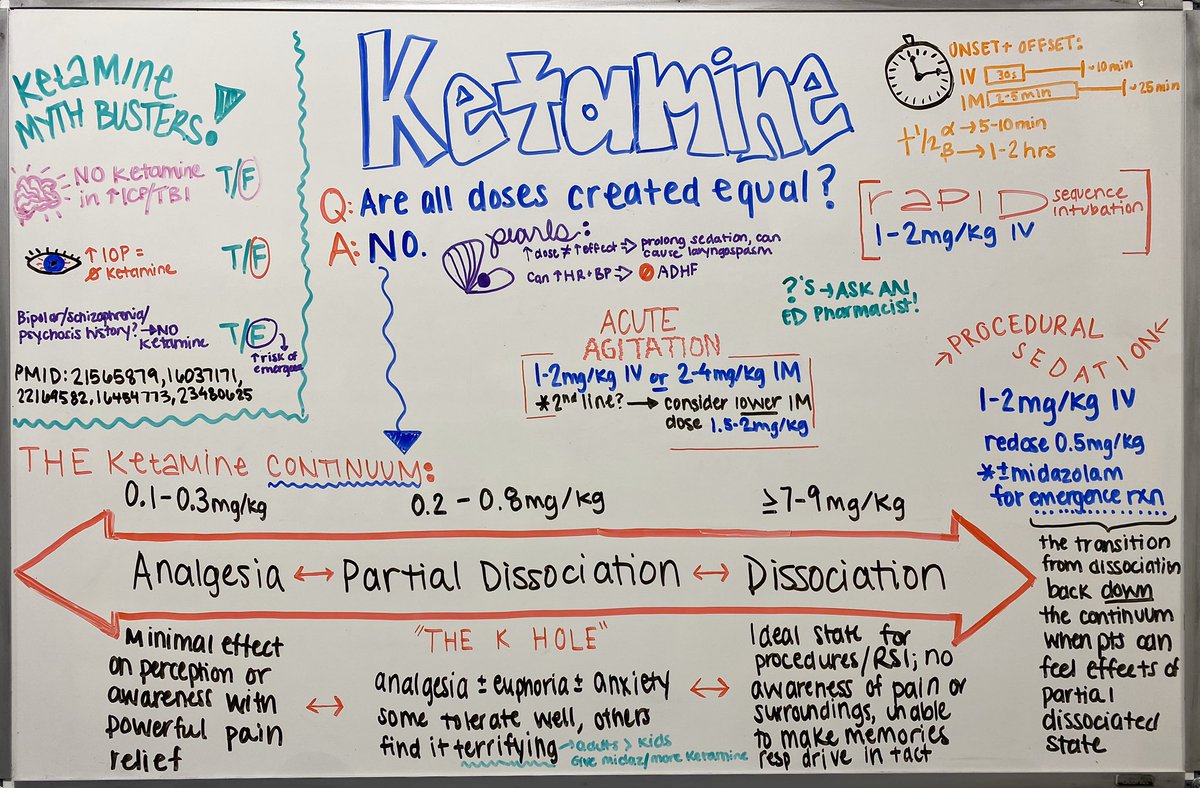 Ketamine
MYTH BUSTERS!
NO Ketamine
in ↑ICP/TBI
T/F
↑ IOP =
Ø Ketamine
T/F
Bipolar/schizophrenia/
psychosis history? →NO
Ketamine
T/F
↑risk of
emergence
PMID: 21565879, 16037171,
22169582, 16454773, 23480625
Ketamine
Q: Are all doses created equal?
A: NO.
pearls:
↑dose ≠ ↑effect ⇒ prolong sedation, can
cause laryngospasm
Can ↑HR+BP ⇒ Ø ADHF
ONSET + OFFSET:
IV 30s ~10min
IM 2-5 min ~25min
t1/2 α →5-10min
β →1-2hrs
RAPID sequence
intubation
1-2mg/kg IV
?'s → ASK AN
ED Pharmacist!
ACUTE
AGITATION
1-2mg/kg IV or 2-4mg/kg IM
*2nd line? → consider lower IM
dose 1.5-2mg/kg
→PROCEDURAL
SEDATION←
1-2mg/kg IV
redose 0.5mg/kg
*±midazolam
for emergence rxn
the transition
from dissociation
back down
the continuum
when pts can
feel effects of
partial
dissociated
state
THE Ketamine CONTINUUM:
0.1-0.3mg/kg 0.2 - 0.8mg/kg ≥7-9mg/kg
Analgesia ↔ Partial Dissociation ↔ Dissociation
Minimal effect
on perception or
awareness with
powerful pain
relief
↔
"THE K HOLE"
analgesia ± euphoria ± anxiety
some tolerate well, others
find it terrifying →adults > kids
Give midaz/more Ketamine
↔
Ideal state for
procedures/RSI; no
awareness of pain or
surroundings, unable
to make memories
resp drive in tact